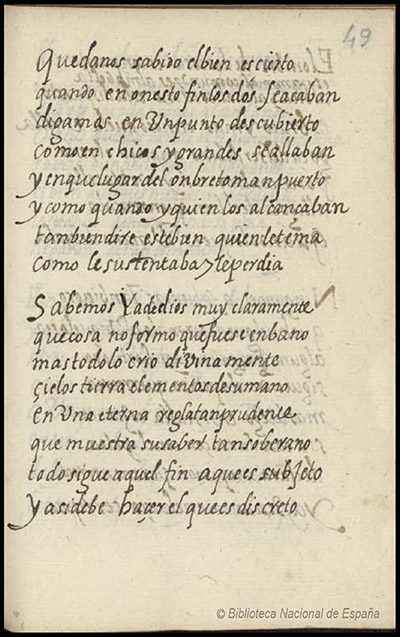 49
Quedanos sabido el bien es cierto
quando en onesto fin los dos seacaban
digamas en Un punto descubierto
como en chicos y grandes se allaban
y en que lugar del onbre toman puerto
y como quando y quien los alcançaban
tanbien dire este bien quien le tema
como le sustentaba y le perdia
Sabemos Ya de dios muy claramente
que cosa no formo que fuese en bano
mas todo lo crio divina mente
çielos tierra elementos de su mano
en Una eterna regla tan prudente
que muestra su saber tan soberano
todo sigue aquel fin a que es subjeto
y asi debe haçer el que es discreto
© Biblioteca Nacional de España